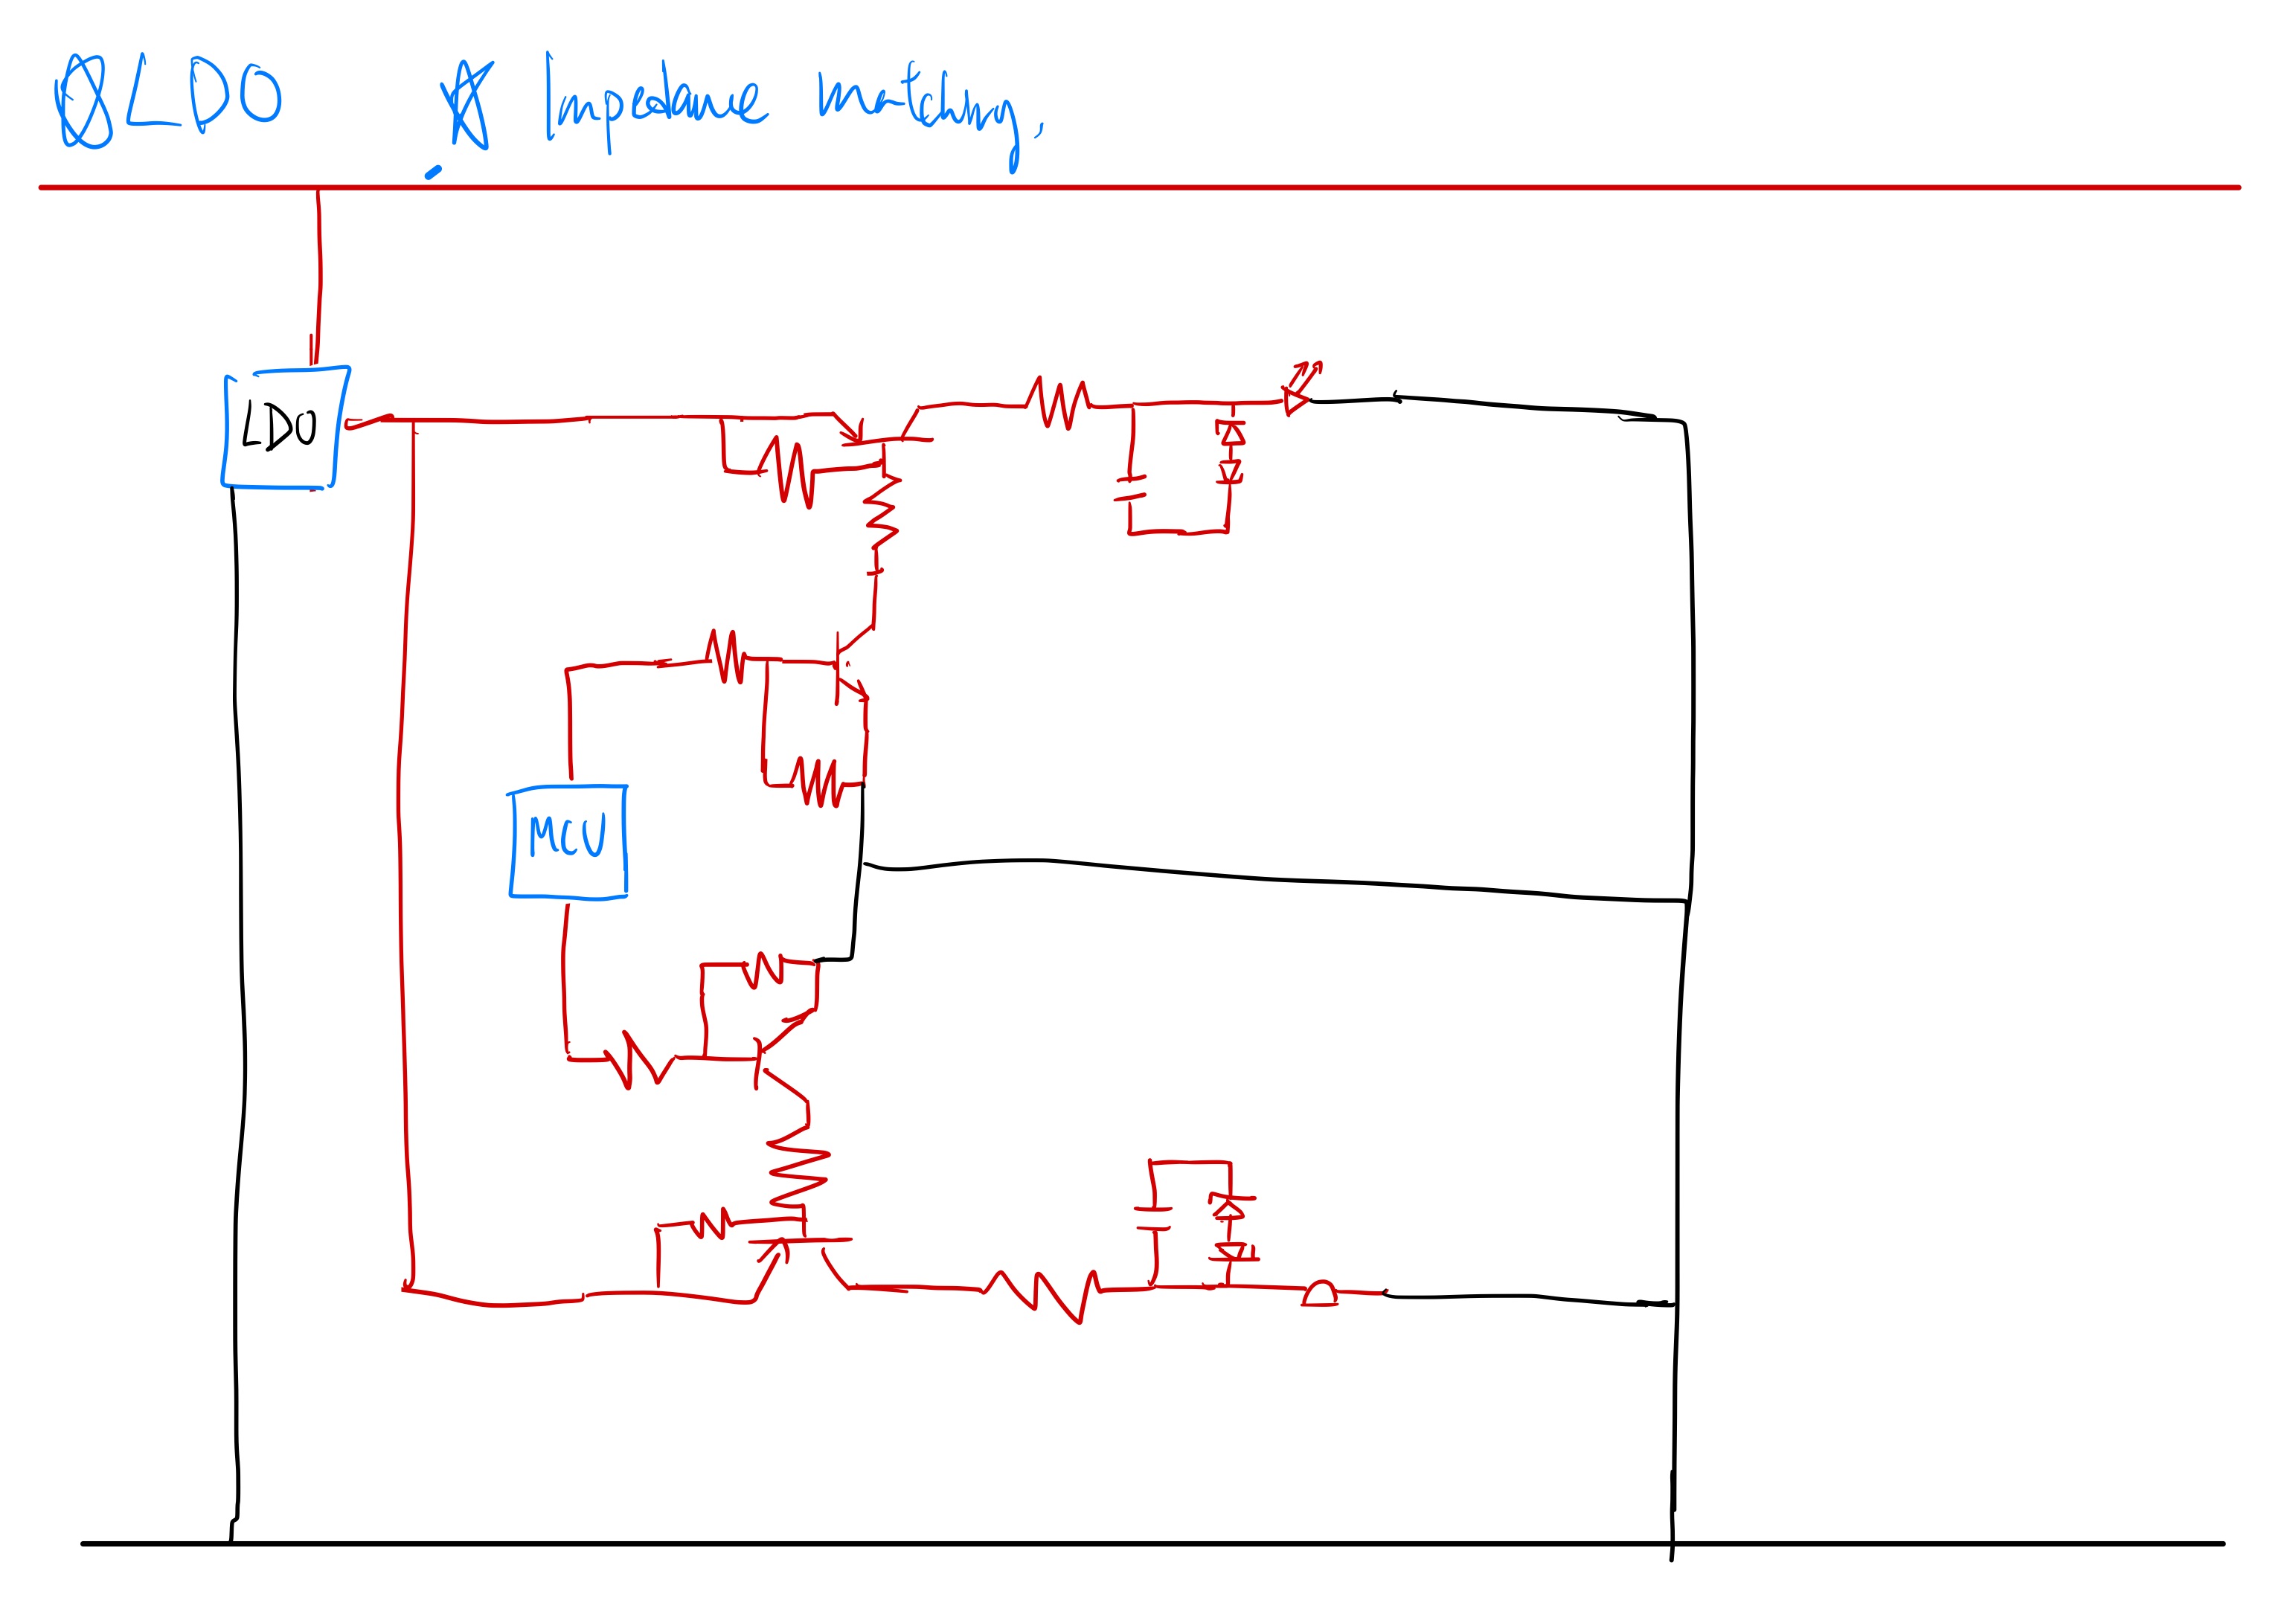 LDO Impedance Matching,
LDO
MCU